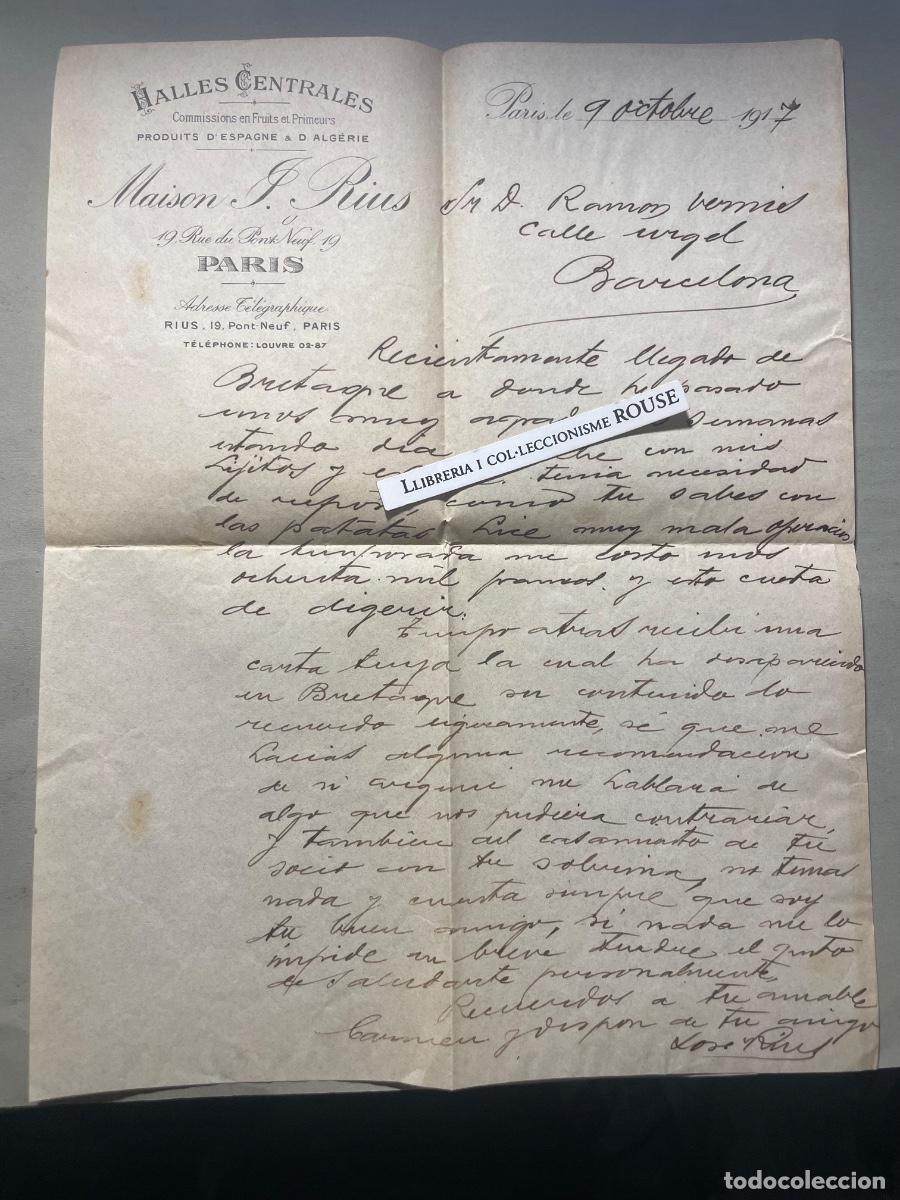 HALLES CENTRALES
Commissions en Fruits et Primeurs
PRODUITS D'ESPAGNE & D'ALGÉRIE
Maison J. Rius
19, Rue du Pont Neuf, 19
PARIS
Adresse Télégraphique
RIUS, 19, Pont-Neuf, PARIS
TÉLÉPHONE: LOUVRE 02-87
Paris, le 9 octobre 1917
Sr D. Ramon Vernis
Calle urgel
Barcelona
Recientamente llegado de
Bretagne a donde he pasado
unos muy semanas
estando dia con mis
hijitos y tenia necesidad
de como tu sabes con
las patatas hice muy mala operacion
la temporada me costo unos
ochenta mil francos y esto cuesta
de digerir.
Tiempo atras recibi una
carta tuya la cual ha desaparecido
en Bretagne su contenido lo
recuerdo ligeramente, sé que me
hacias alguna recomendacion
de si me hablara de
algo que nos pudiera contrariar,
y tambien del casamiento de tu
socio con tu sobrina, no temas
nada y cuenta siempre que soy
tu buen amigo, si nada me lo
impide en breve tendre el gusto
de saludarte personalmente,
Recuerdos a tu amable
Carmen y dispon de tu amigo
Jose Rius
LLIBRERIA I COL·LECCIONISME ROUSE
todocoleccion